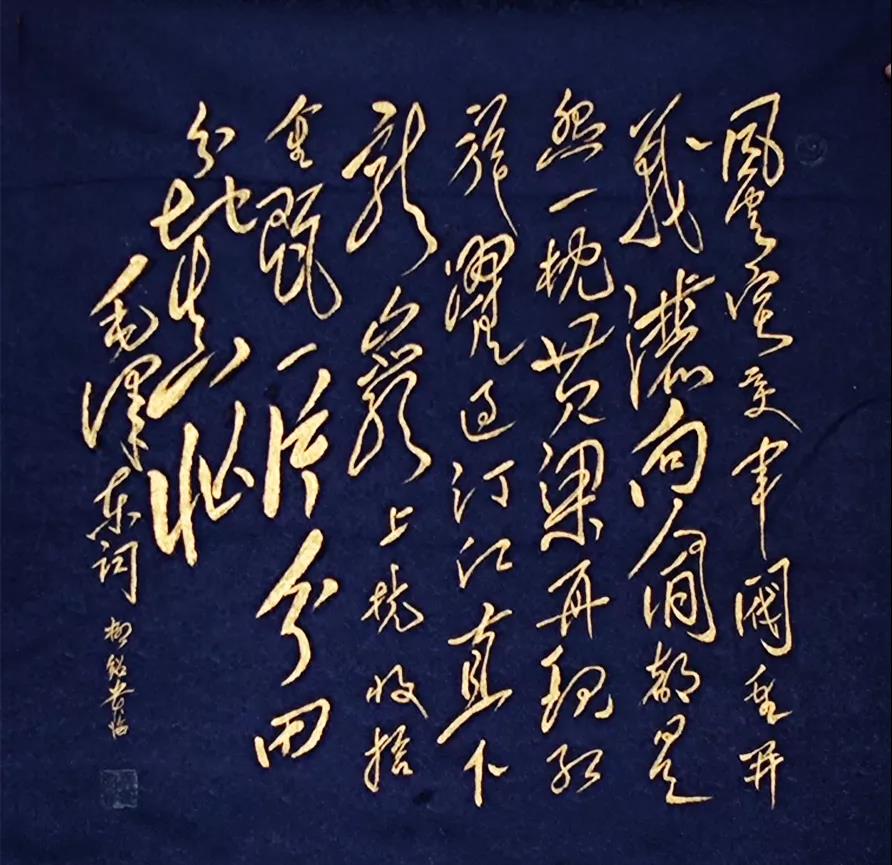 风云突变军阀重开
战灑向人间都是
怨一枕黄粱再现红
旗躍过汀江直下
龙巖上杭收拾
金瓯一片分田
分地真忙
毛泽东词 绍贵临